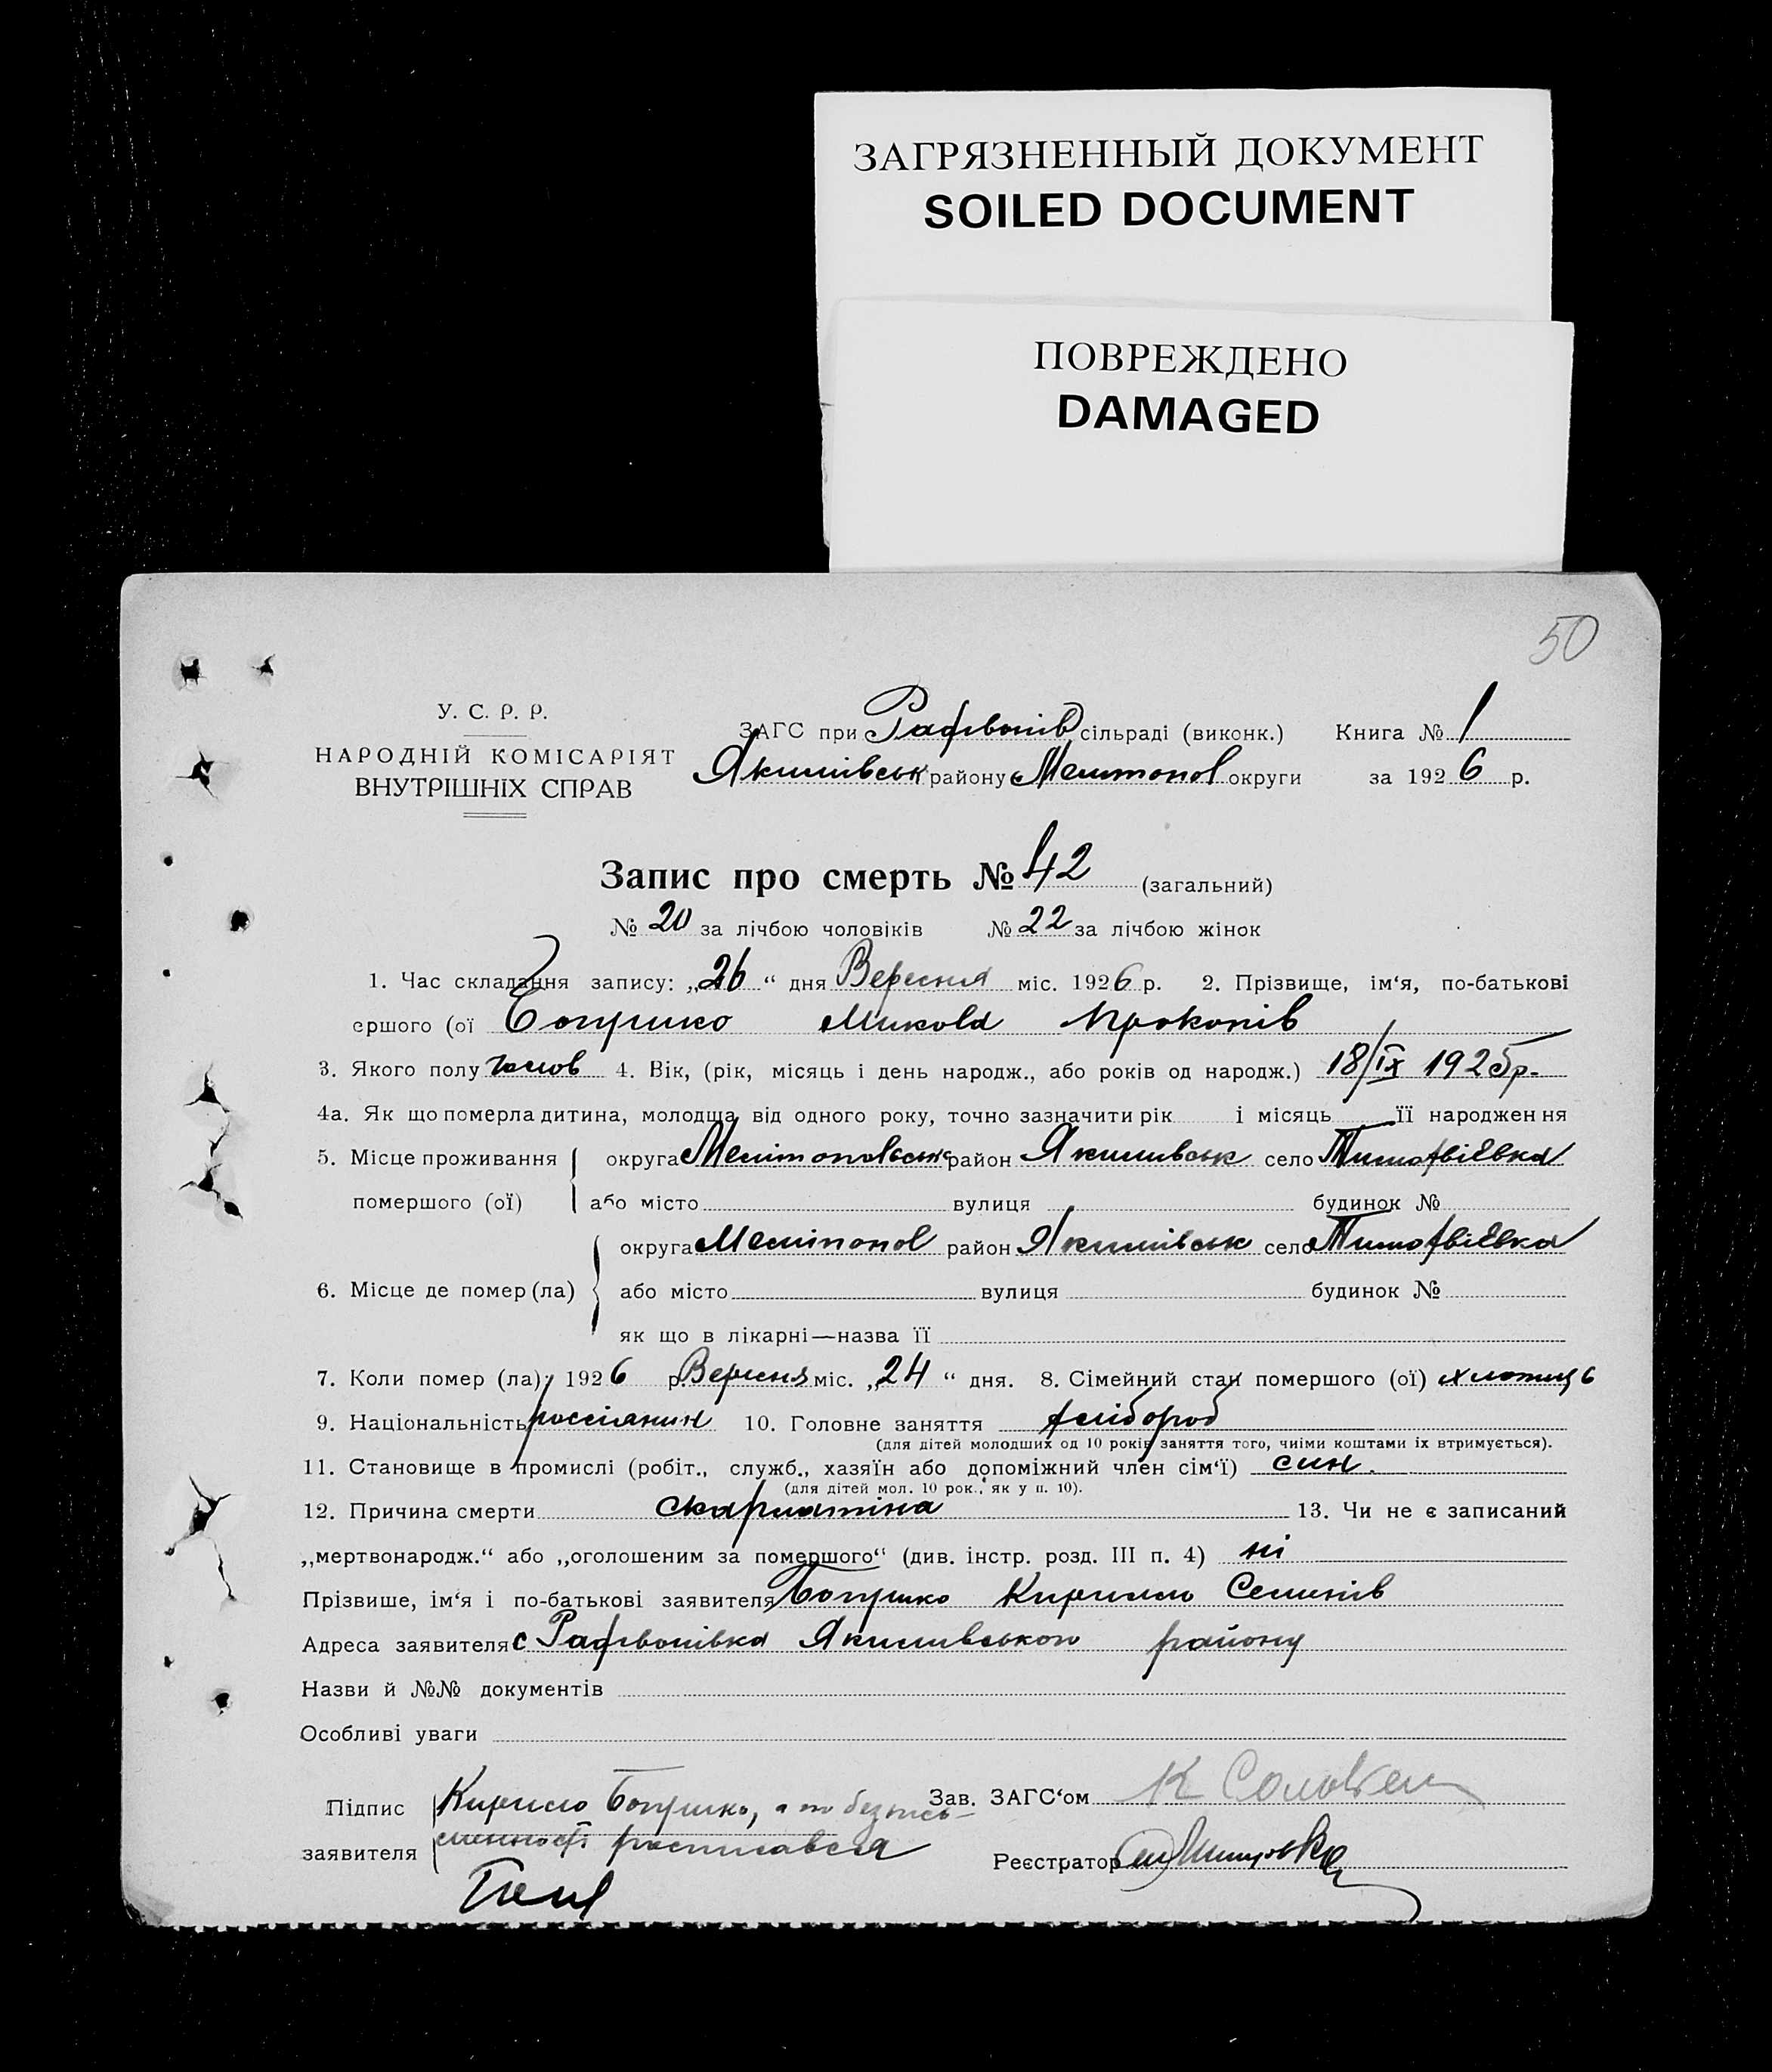 ЗАГРЯЗНЕННЫЙ ДОКУМЕНТ
SOILED DOCUMENT
ПОВРЕЖДЕНО
DAMAGED
50
У. С. Р. Р.
НАРОДНІЙ КОМІСАРІЯТ
ВНУТРІШНІХ СПРАВ
ЗАГС при сільраді (виконк.) Книга № 1
Якимівськ району Мелітопол округи за 1926 р.
Запис про смерть № 42 (загальний)
№ 20 за лічбою чоловіків № 22 за лічбою жінок
1. Час складання запису: „26“ дня Вересня міс. 1926 р. 2. Прізвище, ім‘я, по-батькові
ершого (ої Микола Прокопів
3. Якого полу 4. Вік, (рік, місяць і день народж., або років од народж.) 18/IX 1925р.
4а. Як що померла дитина, молодща від одного року, точно зазначити рік і місяць її народження
5. Місце проживання округа Мелітопольськ район Якимівськ село Тимофвіївка
помершого (ої) або місто вулиця будинок №
округа Мелітопол район Якимівськ село Тимофвіївка
6. Місце де помер (ла) або місто вулиця будинок №
як що в лікарні—назва її
7. Коли помер (ла): 1926 р. Вересня міс. „24“ дня. 8. Сімейний стан помершого (ої)
9. Національність россіянин 10. Головне заняття хлібороб
(для дітей молодших од 10 років заняття того, чиїми коштами їх втримується).
11. Становище в промислі (робіт., служб., хазяїн або допоміжний член сім‘ї) син.
(для дітей мол. 10 рок., як у п. 10).
12. Причина смерти скарлатіна 13. Чи не є записаний
„мертвонародж.“ або „оголошеним за помершого“ (див. інстр. розд. III п. 4) ні
Прізвише, ім‘я і по-батькові заявителя Кирило Семенів
Адреса заявителя с Якимівського району
Назви й №№ документів
Особливі уваги
Підпис Кирило Зав. ЗАГС‘ом К
заявителя расписався
Реєстратор